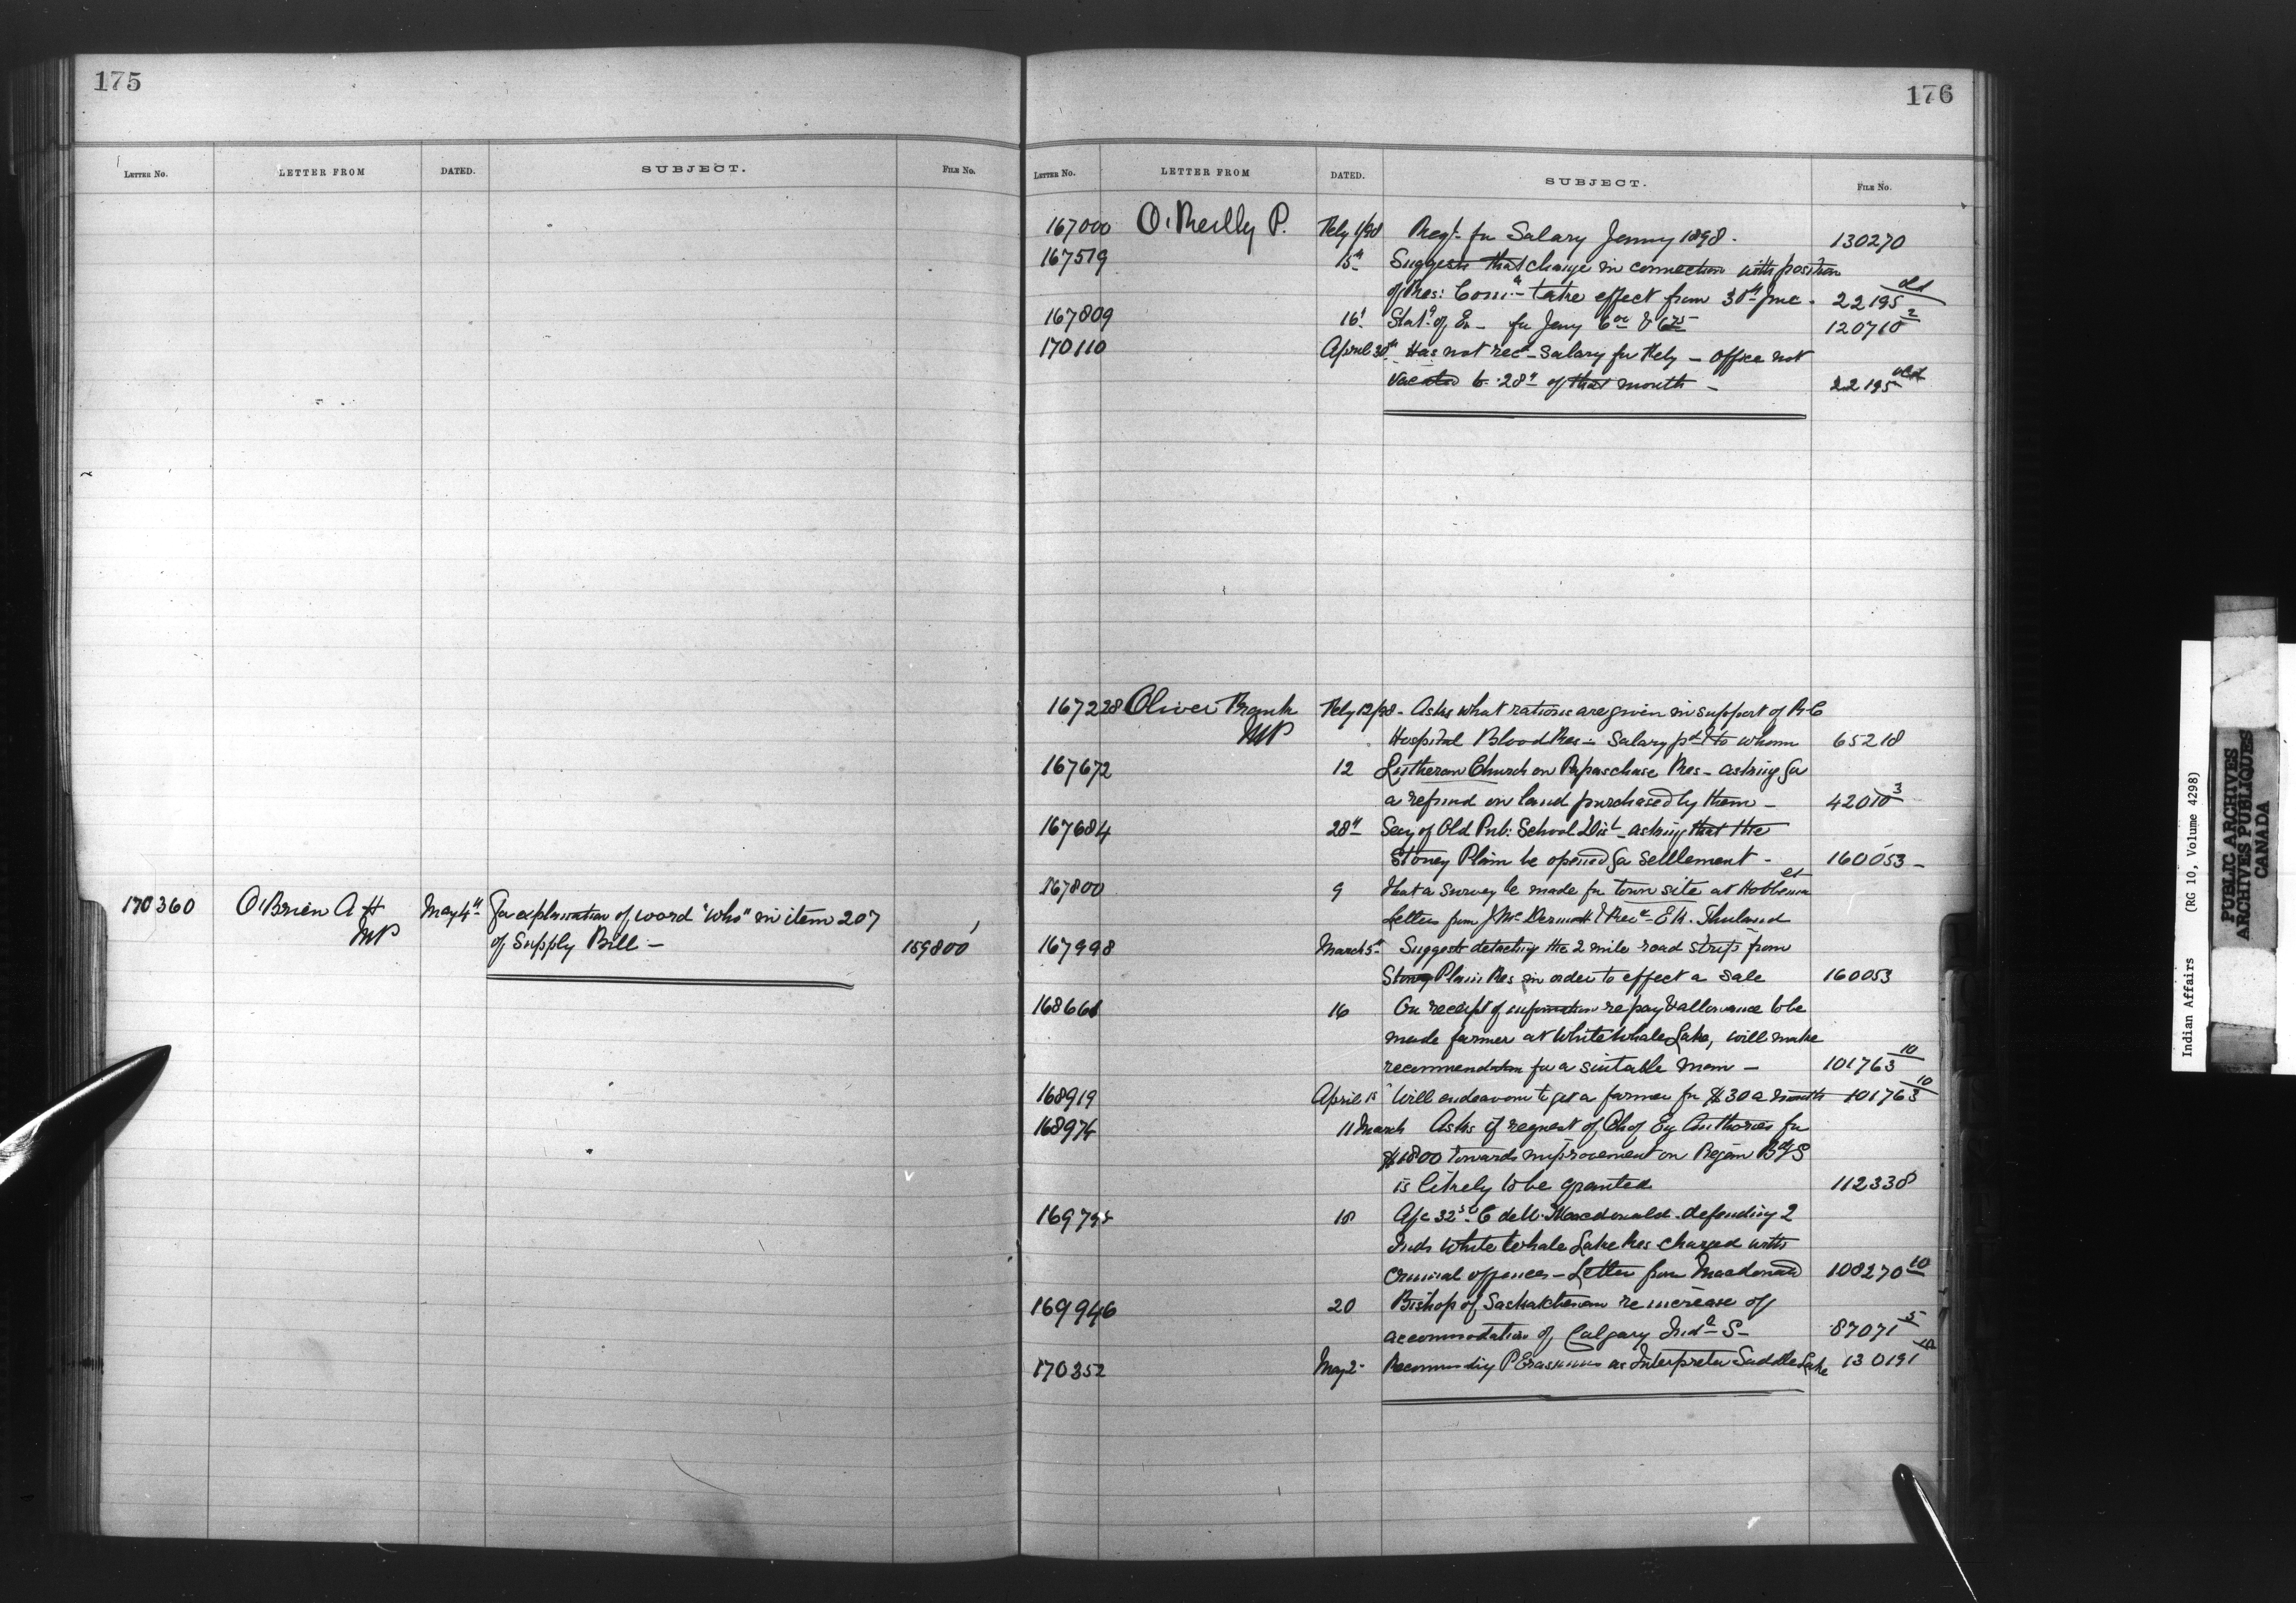 175
LETTER NO. LETTER FROM DATED. SUBJECT. FILE NO.
170360 O'Brien A H May 4th For explanation of word "who" in item 207
MP of Supply Bill — 159800
176
LETTER NO. LETTER FROM DATED. SUBJECT. FILE NO.
167000 O'Reilly P. Feby 1/98 Reqn for Salary Jany 1898. 130270
167519 15th Suggests that change in connection with position
of Res: Comr take effect from 30th June. 22195 old
167809 16 Statt of Ex — for Jany 6 00 & 6 75 120710 2
170110 April 30th Has not recd Salary for Feby — office not
vacated to 28th of that month — 22195 old
167228 Oliver Frank Feby 12/98 - Asks what rations are given in support of R C
MP Hospital Blood Res — Salary pd & to whom 65218
167672 12 Lutheran Church on Papaschase Res — asking for
a refund on land purchased by them — 42010 3
167684 28th Secy of Old Pub: School Dist — asking that the
Stoney Plain be opened for settlement — 160053 —
167800 9 That a survey be made for town site at Hobbema
Letters from J McDermott & E H. Thuland
167998 March 5th Suggests detaching the 2 mile road strips from
Stoney Plain Res in order to effect a sale 160053
168661 16 On receipt of information re pay & allowance to be
made farmer at White Whale Lake, will make
recommendation for a suitable man — 101763 10
168919 April 15 Will endeavour to get a farmer for $30 a month 101763 10
168974 11 March Asks if request of Ch of Eng Authories for
$1800 towards improvement on Regina B S
is likely to be granted 112338
169795 18 A/c 32 C de W. Macdonald. defending 2
Inds White Whale Lake Res charged with
criminal offences — Letter from Macdonald 108270 10
169946 20 Bishop of Saskatchewan re increase of
accommodation of Calgary Indl S — 87071 5
170352 May 2 Recommending P Erasmus as Interpreter Saddle Lake 130191
Indian Affairs (RG 10, Volume 4298)
PUBLIC ARCHIVES
ARCHIVES PUBLIQUES
CANADA